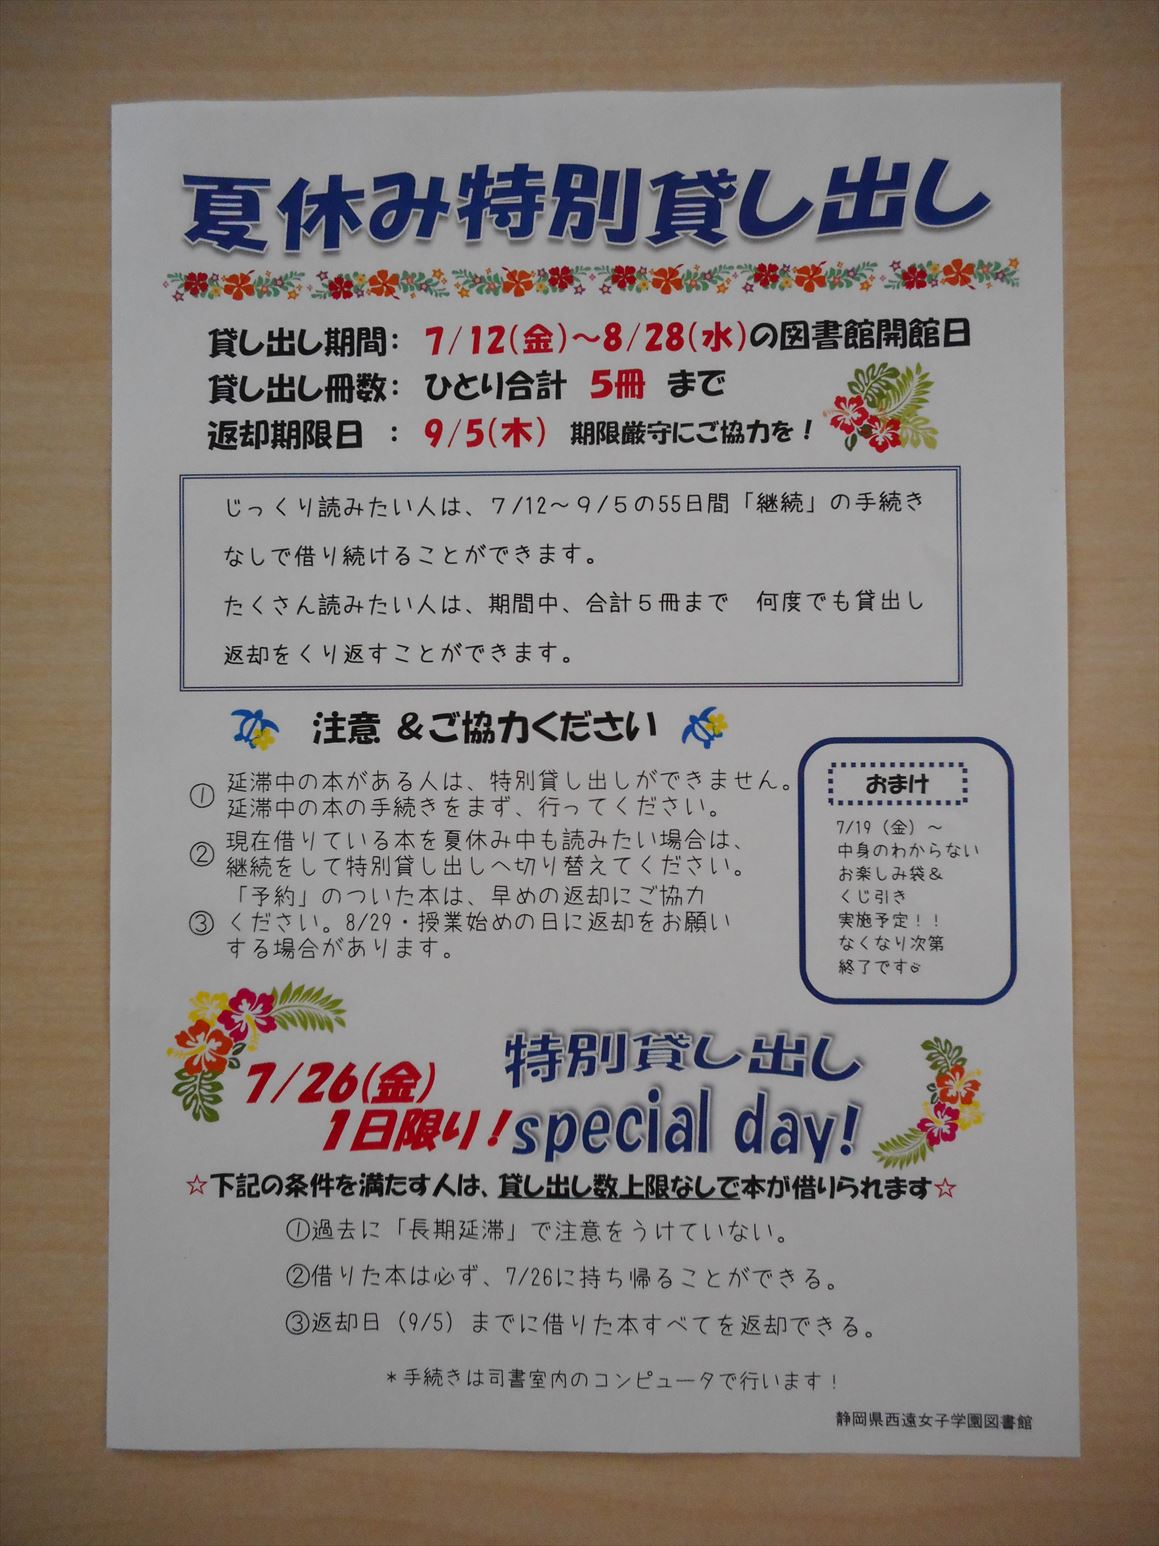 夏休み特別貸し出し
貸し出し期間： 7/12(金)～8/28(水)の図書館開館日
貸し出し冊数： ひとり合計 5冊 まで
返却期限日 ： 9/5(木) 期限厳守にご協力を！
じっくり読みたい人は、７/12～９/５の55日間「継続」の手続き
なしで借り続けることができます。
たくさん読みたい人は、期間中、合計５冊まで　何度でも貸出し
返却をくり返すことができます。
注意 ＆ご協力ください
① 延滞中の本がある人は、特別貸し出しができません。
延滞中の本の手続きをまず、行ってください。
② 現在借りている本を夏休み中も読みたい場合は、
継続をして特別貸し出しへ切り替えてください。
③ 「予約」のついた本は、早めの返却にご協力
ください。8/29・授業始めの日に返却をお願い
する場合があります。
おまけ
7/19（金）～
中身のわからない
お楽しみ袋＆
くじ引き
実施予定！！
なくなり次第
終了です
7/26(金)
1日限り！
特別貸し出し
special day!
☆下記の条件を満たす人は、貸し出し数上限なしで本が借りられます☆
①過去に「長期延滞」で注意をうけていない。
②借りた本は必ず、7/26に持ち帰ることができる。
③返却日（9/5）までに借りた本すべてを返却できる。
＊手続きは司書室内のコンピュータで行います！
静岡県西遠女子学園図書館